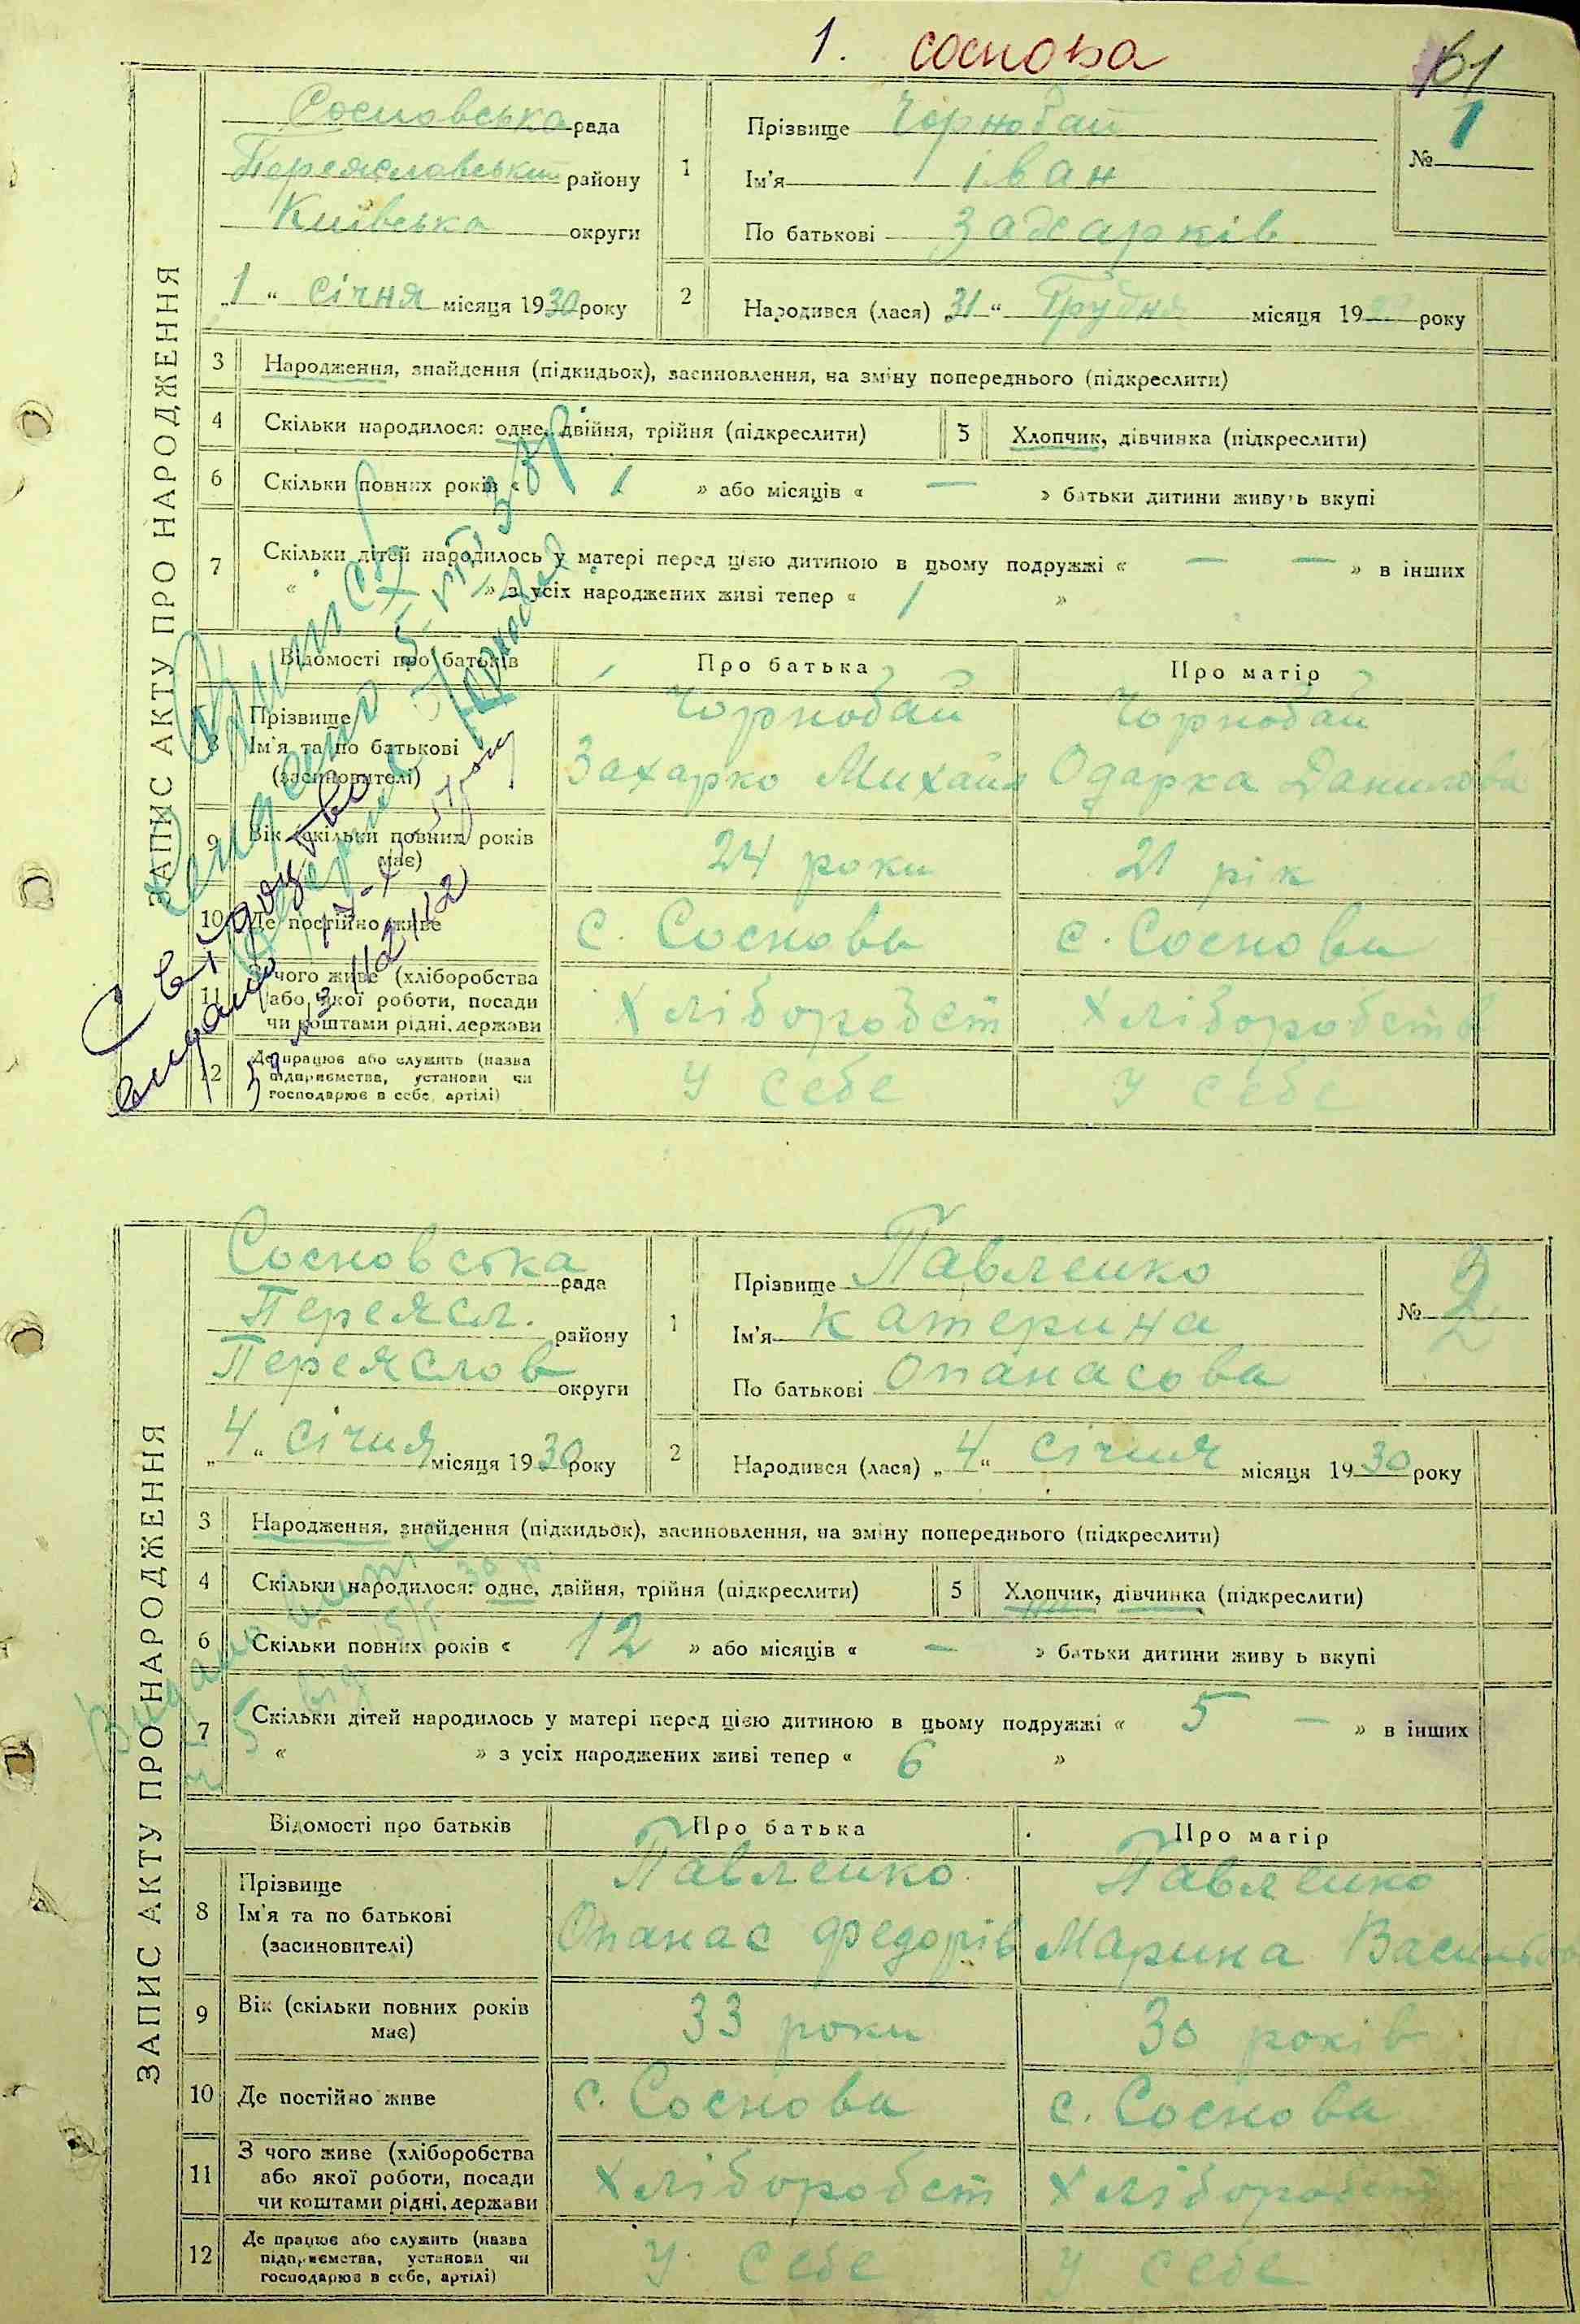 1. соснова
161
ЗАПИС АКТУ ПРО НАРОДЖЕННЯ
Сосновська рада
Переяславський району
Київська округи
„1“ січня місяця 1930 року
1
Прізвище Чорнобай
Ім'я Іван
По батькові
№ 1
2
Народився (лася) „31“ Грудня місяця 19 року
3 Народження, знайдення (підкидьок), засиновлення, на зміну попереднього (підкреслити)
4 Скільки народилося: одне, двійня, трійня (підкреслити)
5 Хлопчик, дівчинка (підкреслити)
6 Скільки повних років « 1 » або місяців « — » батьки дитини живуть вкупі
7 Скільки дітей народилось у матері перед цією дитиною в цьому подружжі « — — » в інших
« » з усіх народжених живі тепер « 1 »
Відомості про батьків
Про батька
Про матір
8 Прізвище
Ім'я та по батькові
(засиновителі)
Чорнобай
Захарко Михайл
Чорнобай
Одарка Данилова
9 Вік (скільки повних років
має)
24 роки
21 рік
10 Де постійно живе
с. Соснова
с. Соснова
11 З чого живе (хліборобства
або якої роботи, посади
чи коштами рідні, держави
Хліборобст
Хліборобств
12 Де працює або служить (назва
підприємства, установи чи
господарює в себе, артілі)
У себе
У себе
ЗАПИС АКТУ ПРО НАРОДЖЕННЯ
Сосновська рада
Переясл. району
Переяслов округи
„4“ січня місяця 1930 року
1
Прізвище Павленко
Ім'я Катерина
По батькові Опанасова
№ 2
2
Народився (лася) „4“ січня місяця 1930 року
3 Народження, знайдення (підкидьок), засиновлення, на зміну попереднього (підкреслити)
4 Скільки народилося: одне, двійня, трійня (підкреслити)
5 Хлопчик, дівчинка (підкреслити)
6 Скільки повних років « 12 » або місяців « — » батьки дитини живу ь вкупі
7 Скільки дітей народилось у матері перед цією дитиною в цьому подружжі « 5 — » в інших
« » з усіх народжених живі тепер « 6 »
Відомості про батьків
Про батька
Про матір
8 Прізвище
Ім'я та по батькові
(засиновителі)
Павленко
Опанас Федорів
Павленко
Марина
9 Вік (скільки повних років
має)
33 роки
30 років
10 Де постійно живе
с. Соснова
с. Соснова
11 З чого живе (хліборобства
або якої роботи, посади
чи коштами рідні, держави
Хліборобст
Хліборобст
12 Де працює або служить (назва
підприємства, установи чи
господарює в себе, артілі)
У себе
У себе